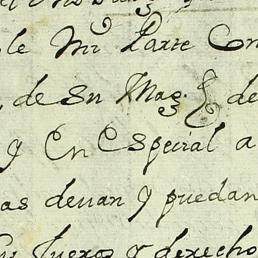 de Mi Parte Con
de Su Mag. de
y En Especial a
as devan y puedan
fueros y derecho